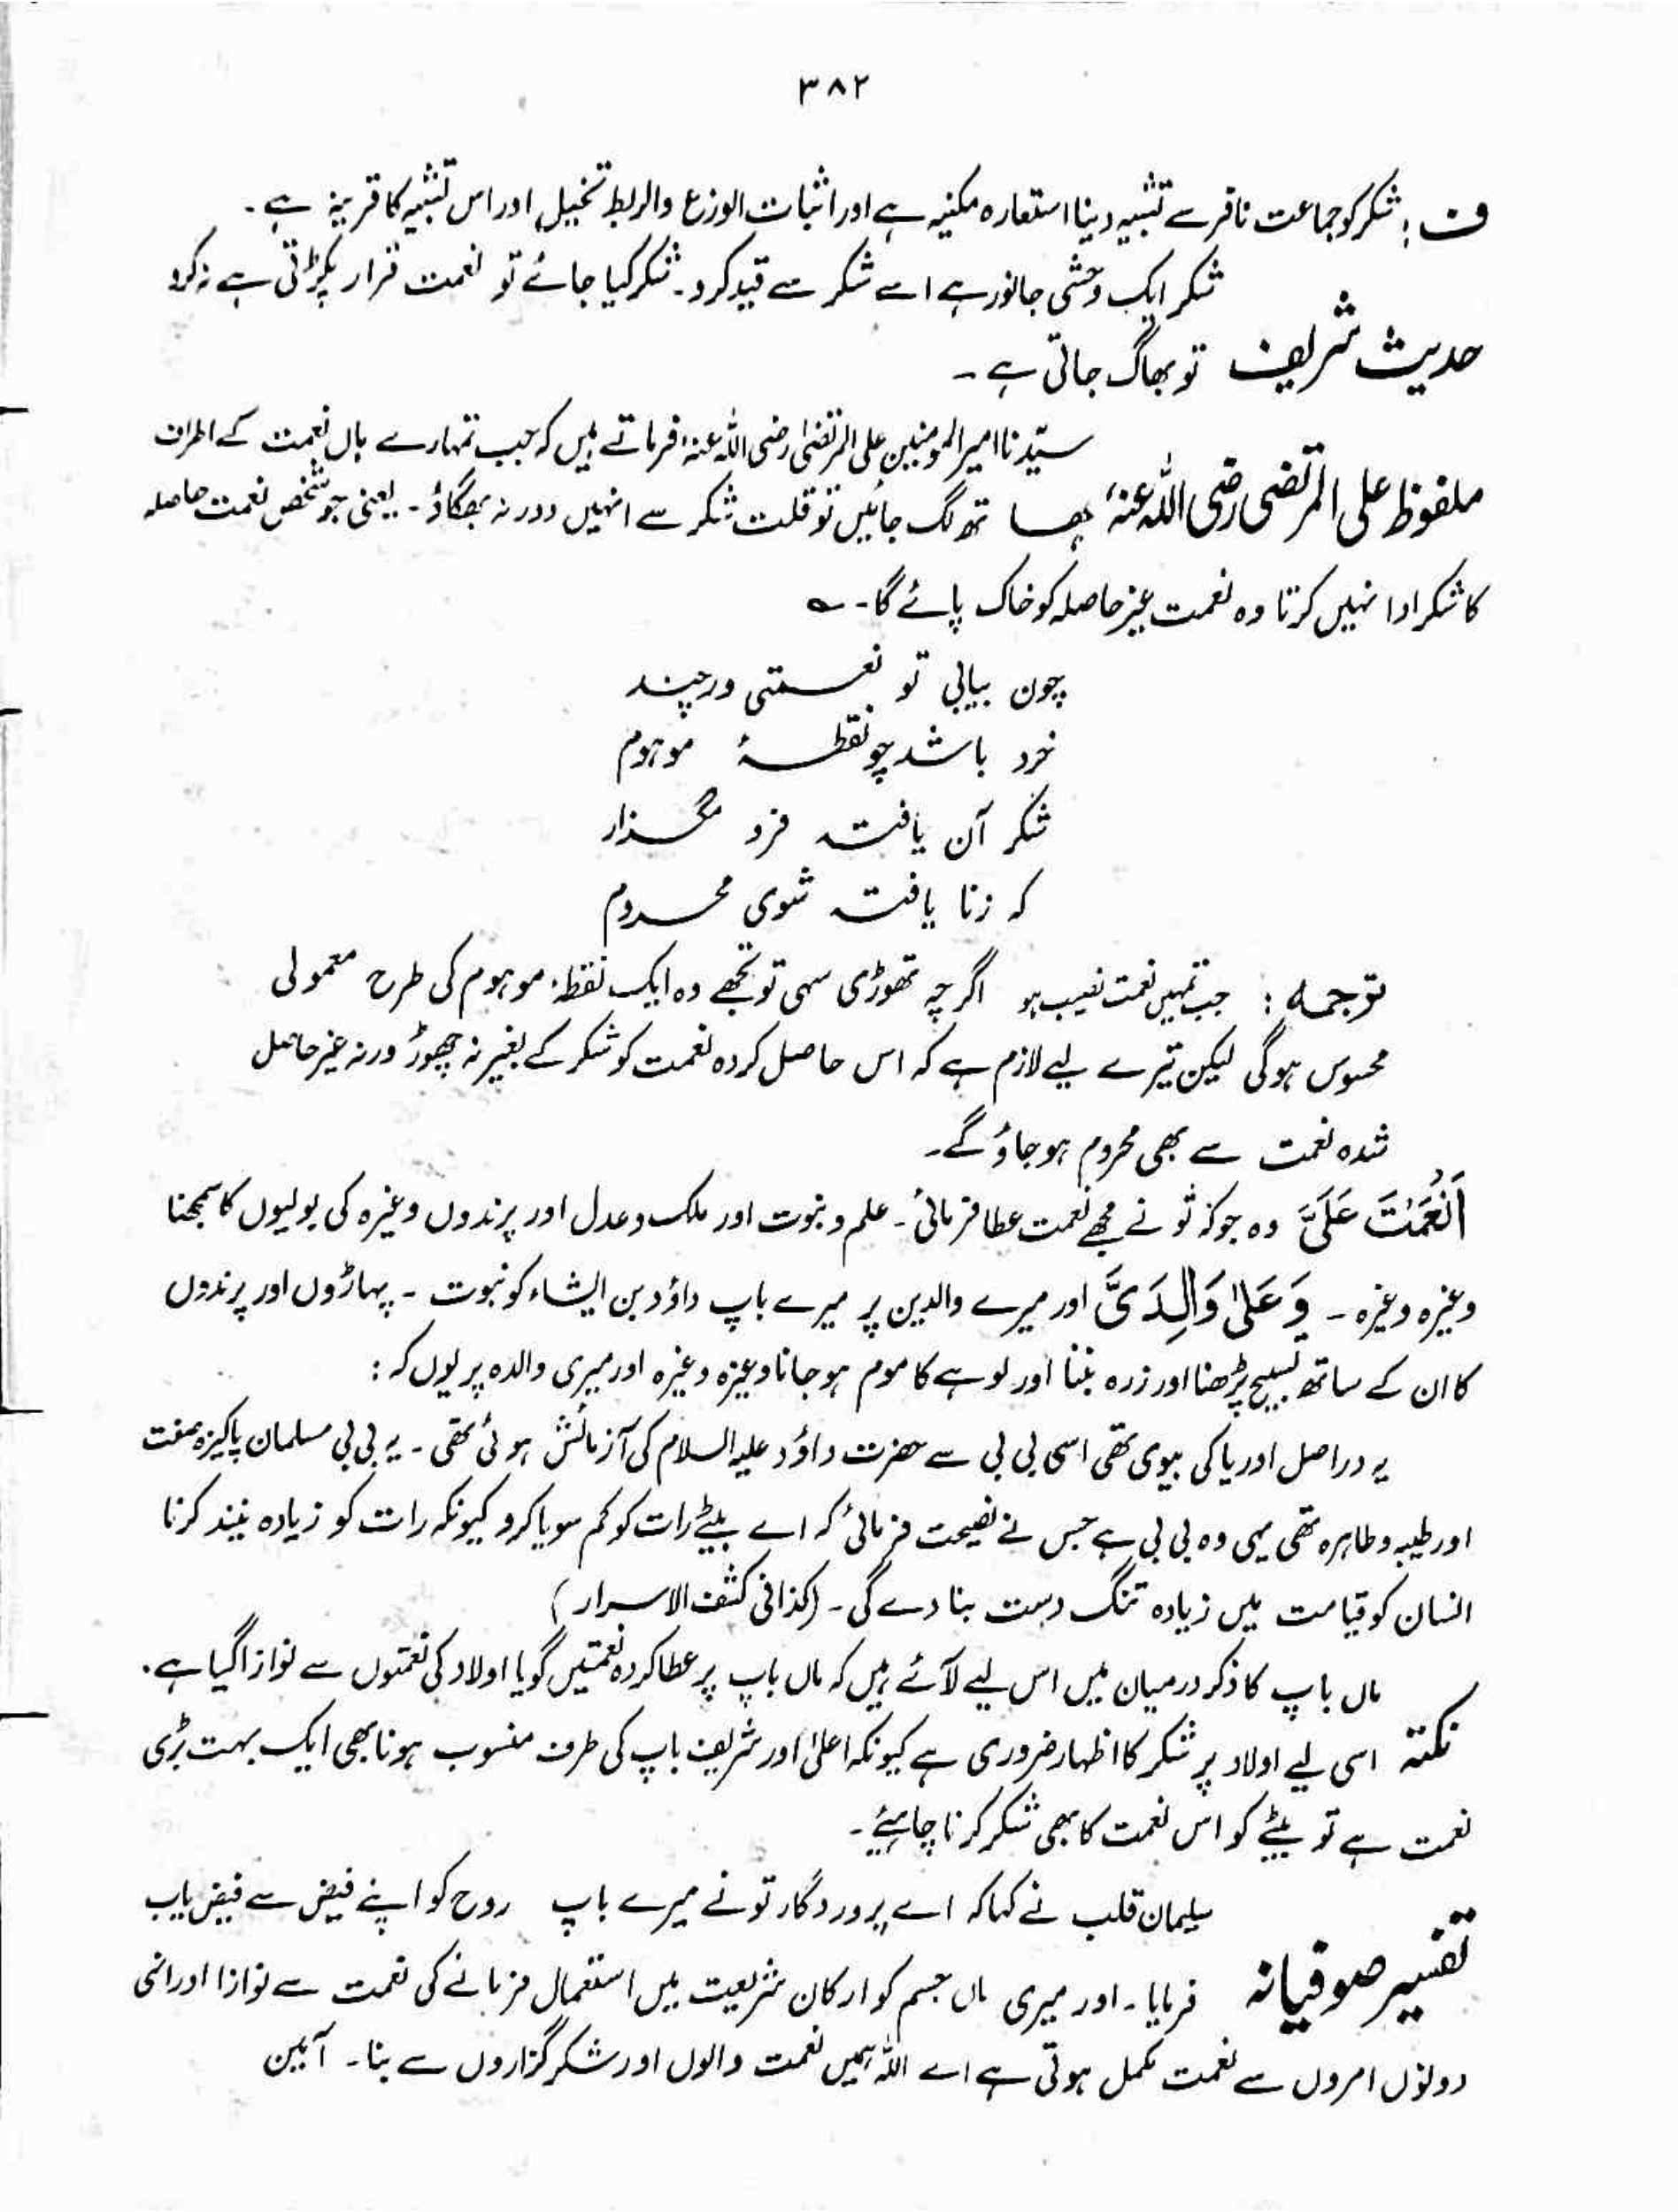 ۳۸۲
ف: شکر کو جماعت نافر سے تشبیہ دینا استعارہ مکنیہ ہے اور اثبات الوزع والربط تخییل اور اس تشبیہ کا قرینہ ہے۔
شکر ایک وحشی جانور ہے اسے شکر سے قید کرد۔ شکر کیا جائے تو نعمت قرار پکڑتی ہے نہ کرو
حدیث شریف تو بھاگ جاتی ہے۔
سیّدنا امیر المومنین علی المرتضیٰ رضی اللہ عنہٗ فرماتے ہیں کہ جب تمہارے ہاں نعمت کے اطراف
ملفوظ علی المرتضی رضی اللہ عنہٗ ہا تھ لگ جائیں تو قلت شکر سے انہیں دور نہ بھگاؤ۔ یعنی جو شخص نعمت حاصلہ
کا شکر ادا نہیں کرتا وہ نعمت غیر حاصلہ کو خاک پائے گا۔ ؎
چون بیابی تو نعمتی ورچند
خرد باشد چو نقطۂ موہوم
شکر آن یافتہ فرو مگذار
کہ زنا یافتہ شوی محروم
ترجمہ: جب تمہیں نعمت نصیب ہو اگرچہ تھوڑی سہی تو تجھے وہ ایک نقطۂ موہوم کی طرح معمولی
محسوس ہوگی لیکن تیرے لیے لازم ہے کہ اس حاصل کردہ نعمت کو شکر کے بغیر نہ چھوڑ ورنہ غیر حاصل
شدہ نعمت سے بھی محروم ہو جاؤ گے۔
اَنْعَمْتَ عَلَیَّ وہ جو کہ تُو نے مجھے نعمت عطا فرمائی۔ علم و نبوت اور ملک و عدل اور پرندوں وغیرہ کی بولیوں کا سمجھنا
وغیرہ وغیرہ۔ وَعَلیٰ وَالِدَیَّ اور میرے والدین پر میرے باپ داؤد بن ایشاء کو نبوت۔ پہاڑوں اور پرندوں
کا ان کے ساتھ تسبیح پڑھنا اور زرہ بننا اور لوہے کا موم ہو جانا وغیرہ وغیرہ اور میری والدہ پر یوں کہ:
یہ دراصل اوریا کی بیوی تھی اسی بی بی سے حضرت داؤد علیہ السلام کی آزمائش ہوئی تھی۔ یہ بی بی مسلمان پاکیزہ صفت
اور طیبہ و طاہرہ تھی یہی وہ بی بی ہے جس نے نصیحت فرمائی کہ اے بیٹے رات کو کم سویا کرو کیونکہ رات کو زیادہ نیند کرنا
انسان کو قیامت میں زیادہ تنگ دست بنا دے گی۔ (کذا فی کشف الاسرار)
ماں باپ کا ذکر درمیان میں اس لیے لائے ہیں کہ ماں باپ پر عطا کردہ نعمتیں گویا اولاد کی نعمتوں سے نوازا گیا ہے۔
نکتہ اسی لیے اولاد پر شکر کا اظہار ضروری ہے کیونکہ اعلیٰ اور شریف باپ کی طرف منسوب ہونا بھی ایک بہت بڑی
نعمت ہے تو بیٹے کو اس نعمت کا بھی شکر کرنا چاہیئے۔
سلیمان قلب نے کہا کہ اے پروردگار تو نے میرے باپ روح کو اپنے فیض سے فیض یاب
تفسیر صوفیانہ فرمایا۔ اور میری ماں جسم کو ارکان شریعت میں استعمال فرمانے کی نعمت سے نوازا اور انہی
دونوں امروں سے نعمت مکمل ہوتی ہے اے اللہ ہمیں نعمت والوں اور شکر گزاروں سے بنا۔ آمین